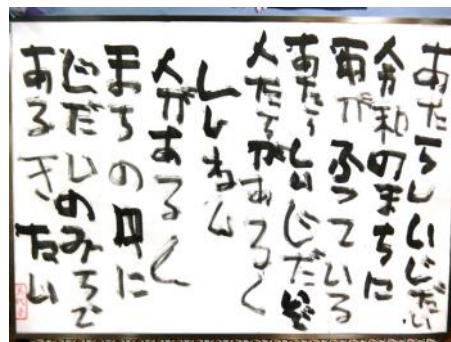 あたらしいじだい
令和のまちに
雨がふっている
あたらしいじだい
人たちがあるく
しじねん
人がある く
まちの中に
じだいのみちで
あるきたい